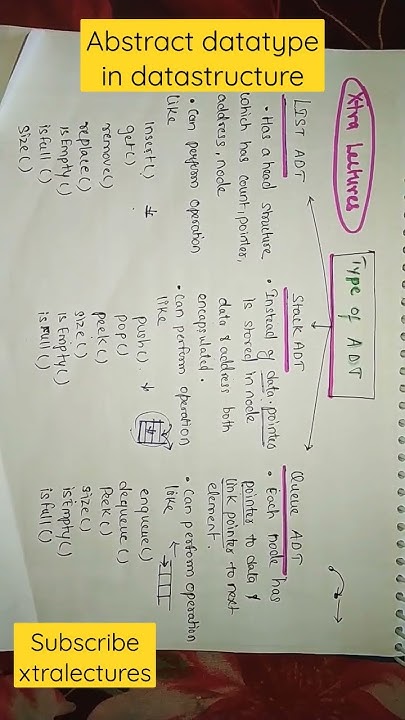 Abstract datatype
in datastructure
Xtra Lectures
Type of ADT
LIST ADT
• Has a head structure
which has count, pointer,
address, node
• Can perform operation
like
Insert()
get()
remove()
replace()
isEmpty()
isFull()
size()
Stack ADT
• Instead of data, pointer
is stored in node
data & address both
encapsulated.
• Can perform operation
like
push()
pop()
peek()
size()
isEmpty()
isFull()
Queue ADT
• Each node has
pointer to data &
link pointer to next
element.
• Can perform operation
like
enqueue()
dequeue()
Peek()
size()
isEmpty()
isfull()
Subscribe
xtralectures